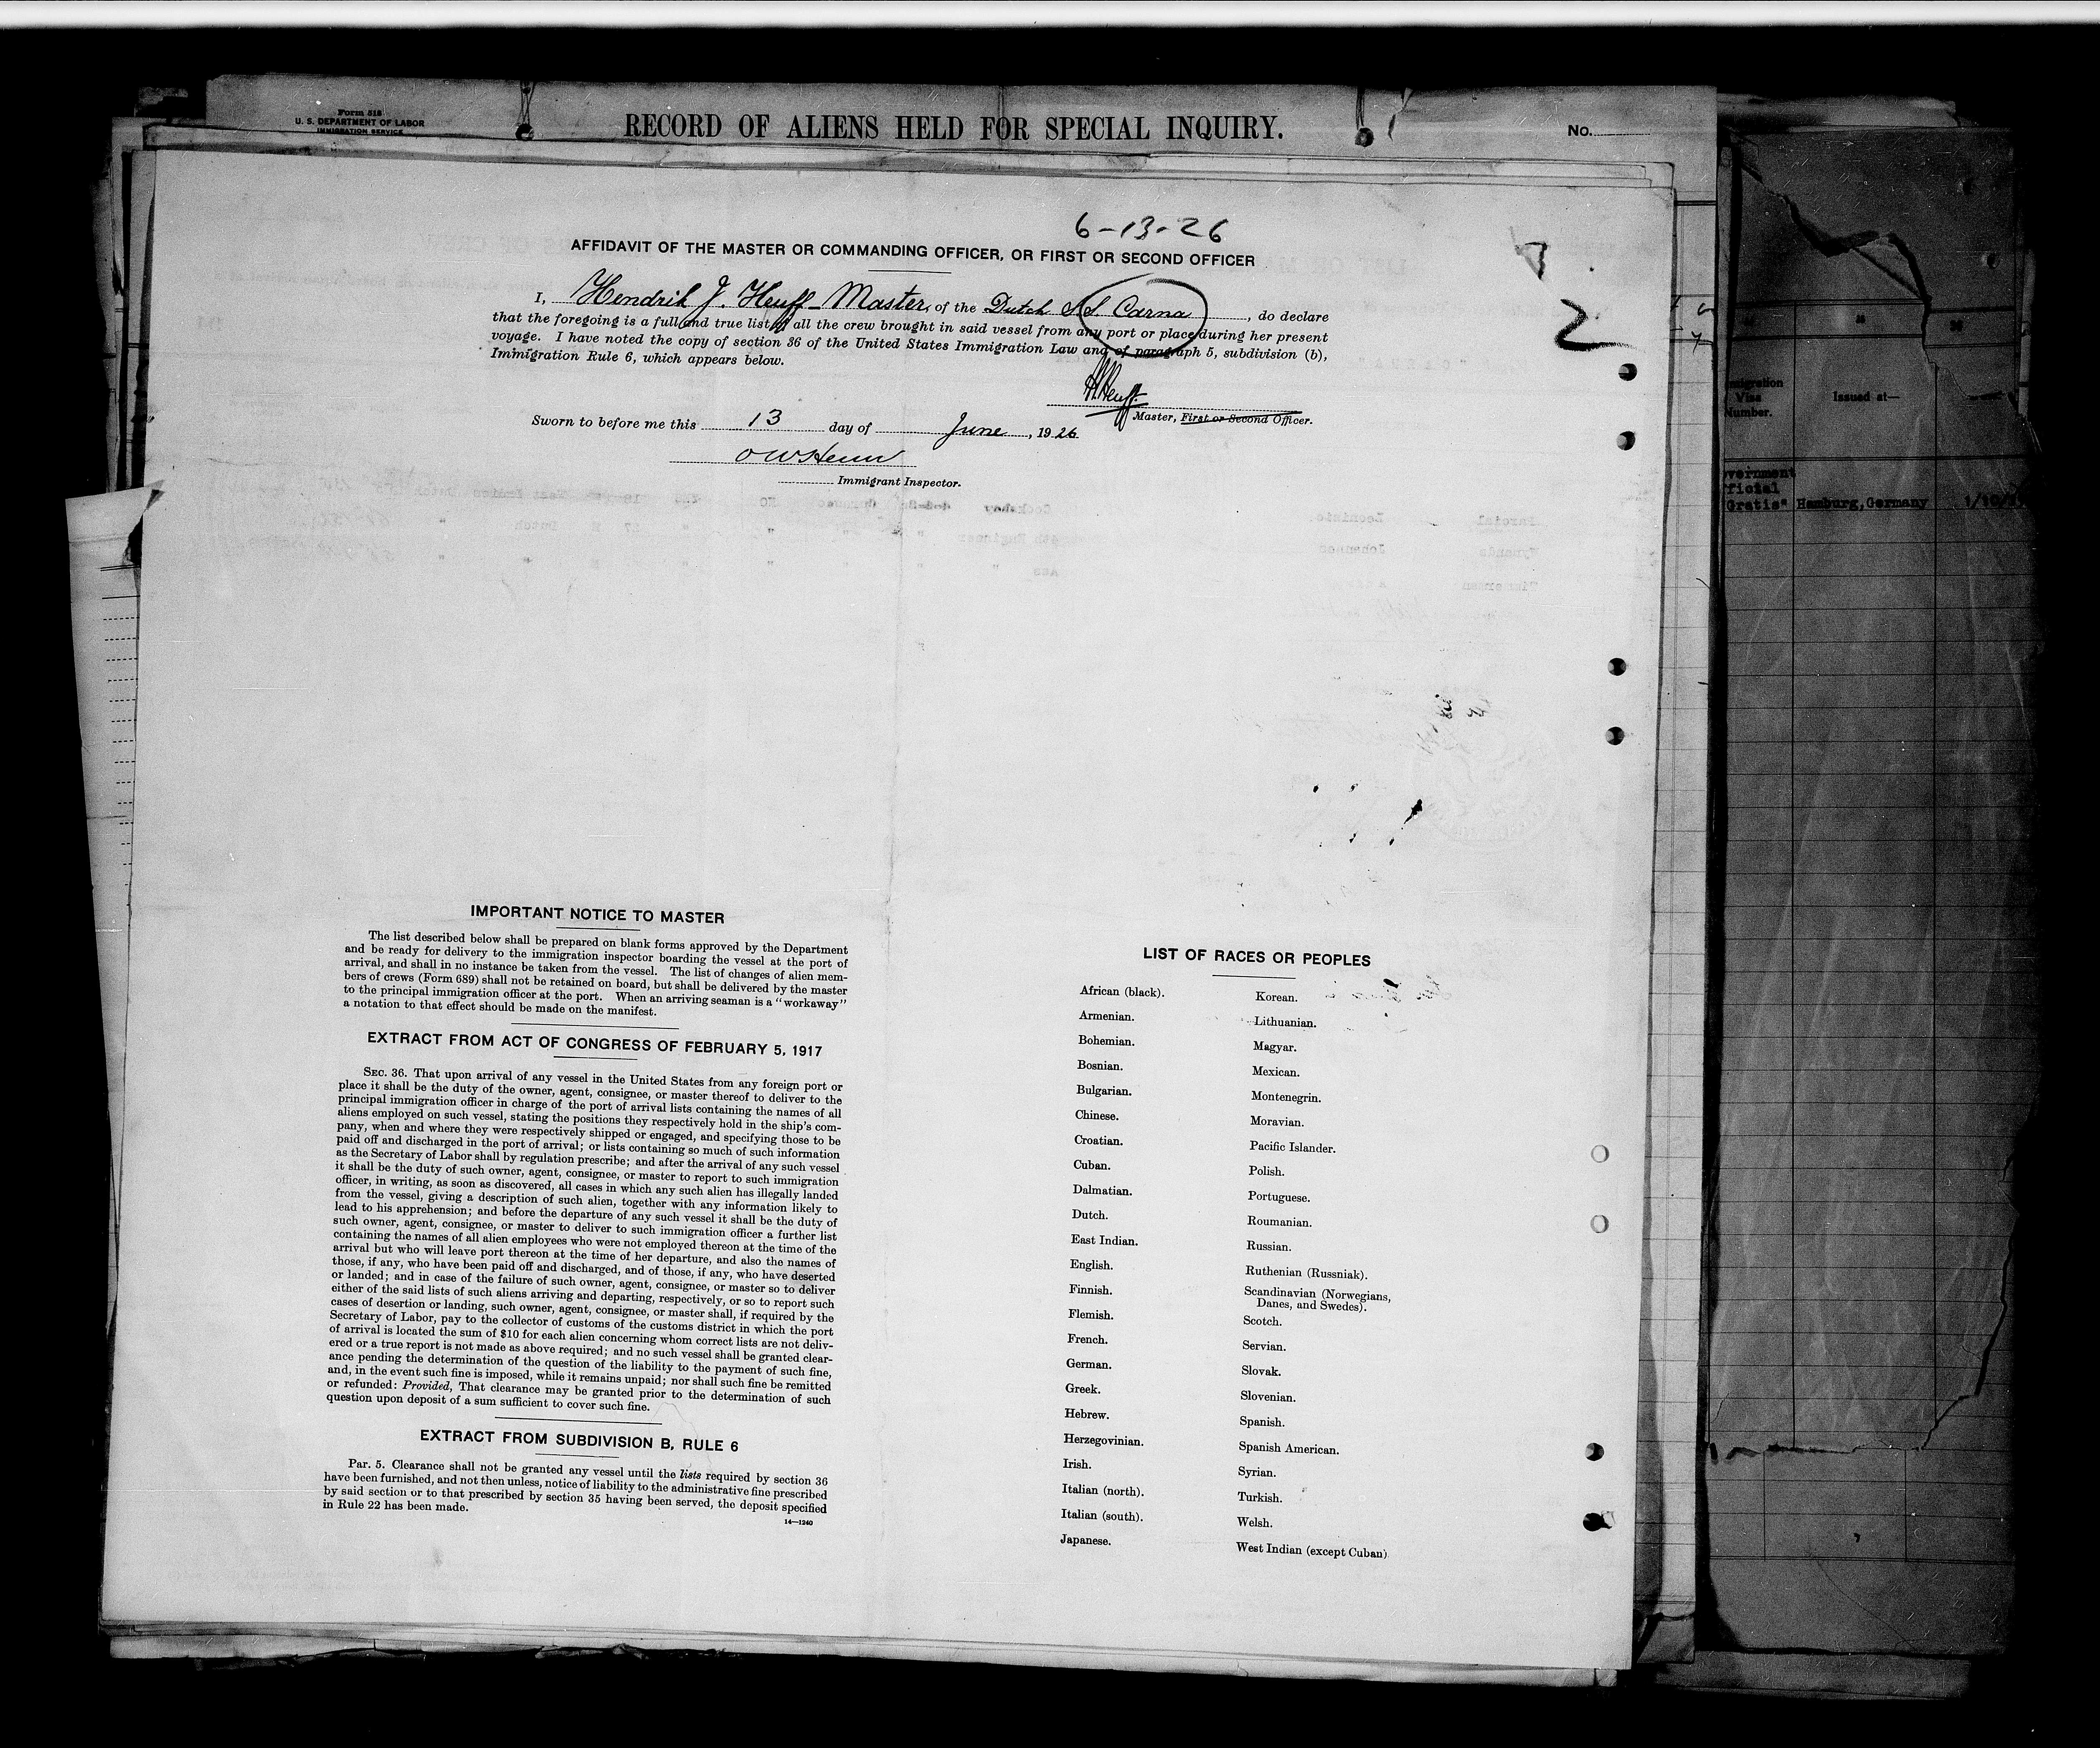 Form 518
U. S. DEPARTMENT OF LABOR
IMMIGRATION SERVICE
RECORD OF ALIENS HELD FOR SPECIAL INQUIRY.
No.
6-13-26
AFFIDAVIT OF THE MASTER OR COMMANDING OFFICER, OR FIRST OR SECOND OFFICER
2
I, Hendrik J. Heuff - Master, of the Dutch SS Carna, do declare
that the foregoing is a full and true list of all the crew brought in said vessel from any port or place during her present
voyage. I have noted the copy of section 36 of the United States Immigration Law and of paragraph 5, subdivision (b),
Immigration Rule 6, which appears below.
HHeuff.
Master, First or Second Officer.
Sworn to before me this 13 day of June, 1926
Immigrant Inspector.
migration
Visa
Number.
Issued at—
vernment
ficial
Gratis"
Hamburg, Germany
IMPORTANT NOTICE TO MASTER
The list described below shall be prepared on blank forms approved by the Department
and be ready for delivery to the immigration inspector boarding the vessel at the port of
arrival, and shall in no instance be taken from the vessel. The list of changes of alien mem-
bers of crews (Form 689) shall not be retained on board, but shall be delivered by the master
to the principal immigration officer at the port. When an arriving seaman is a "workaway"
a notation to that effect should be made on the manifest.
EXTRACT FROM ACT OF CONGRESS OF FEBRUARY 5, 1917
SEC. 36. That upon arrival of any vessel in the United States from any foreign port or
place it shall be the duty of the owner, agent, consignee, or master thereof to deliver to the
principal immigration officer in charge of the port of arrival lists containing the names of all
aliens employed on such vessel, stating the positions they respectively hold in the ship's com-
pany, when and where they were respectively shipped or engaged, and specifying those to be
paid off and discharged in the port of arrival; or lists containing so much of such information
as the Secretary of Labor shall by regulation prescribe; and after the arrival of any such vessel
it shall be the duty of such owner, agent, consignee, or master to report to such immigration
officer, in writing, as soon as discovered, all cases in which any such alien has illegally landed
from the vessel, giving a description of such alien, together with any information likely to
lead to his apprehension; and before the departure of any such vessel it shall be the duty of
such owner, agent, consignee, or master to deliver to such immigration officer a further list
containing the names of all alien employees who were not employed thereon at the time of the
arrival but who will leave port thereon at the time of her departure, and also the names of
those, if any, who have been paid off and discharged, and of those, if any, who have deserted
or landed; and in case of the failure of such owner, agent, consignee, or master so to deliver
either of the said lists of such aliens arriving and departing, respectively, or so to report such
cases of desertion or landing, such owner, agent, consignee, or master shall, if required by the
Secretary of Labor, pay to the collector of customs of the customs district in which the port
of arrival is located the sum of $10 for each alien concerning whom correct lists are not deliv-
ered or a true report is not made as above required; and no such vessel shall be granted clear-
ance pending the determination of the question of the liability to the payment of such fine,
and, in the event such fine is imposed, while it remains unpaid; nor shall such fine be remitted
or refunded: Provided, That clearance may be granted prior to the determination of such
question upon deposit of a sum sufficient to cover such fine.
EXTRACT FROM SUBDIVISION B, RULE 6
Par. 5. Clearance shall not be granted any vessel until the lists required by section 36
have been furnished, and not then unless, notice of liability to the administrative fine prescribed
by said section or to that prescribed by section 35 having been served, the deposit specified
in Rule 22 has been made.
14—1240
LIST OF RACES OR PEOPLES
African (black).
Armenian.
Bohemian.
Bosnian.
Bulgarian.
Chinese.
Croatian.
Cuban.
Dalmatian.
Dutch.
East Indian.
English.
Finnish.
Flemish.
French.
German.
Greek.
Hebrew.
Herzegovinian.
Irish.
Italian (north).
Italian (south).
Japanese.
Korean.
Lithuanian.
Magyar.
Mexican.
Montenegrin.
Moravian.
Pacific Islander.
Polish.
Portuguese.
Roumanian.
Russian.
Ruthenian (Russniak).
Scandinavian (Norwegians,
Danes, and Swedes).
Scotch.
Servian.
Slovak.
Slovenian.
Spanish.
Spanish American.
Syrian.
Turkish.
Welsh.
West Indian (except Cuban)